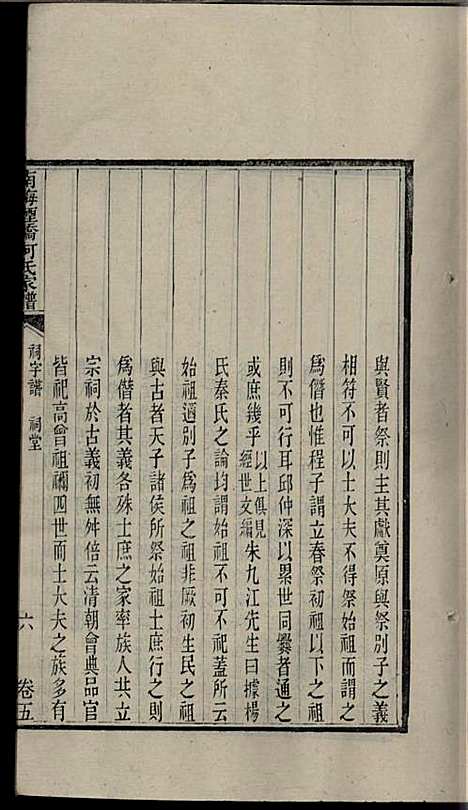 與賢者祭則主其獻奠原與祭別子之義
相符不可以士大夫不得祭始祖而謂之
爲僭也惟程子謂立春祭初祖以下之祖
則不可行耳邱仲深以累世同爨者通之
或庶幾乎以上俱見經世文編朱九江先生曰據楊
氏秦氏之論均謂始祖不可不祀蓋所云
始祖迺別子爲祖之祖非厥初生民之祖
與古者天子諸侯所祭始祖士庶行之則
爲僭者其義各殊士庶之家率族人共立
宗祠於古義初無舛倍云清朝會典品官
皆祀高曾祖禰四世而士大夫之族多有
南海煙橋何氏家譜
祠宇譜 祠堂
六
卷五